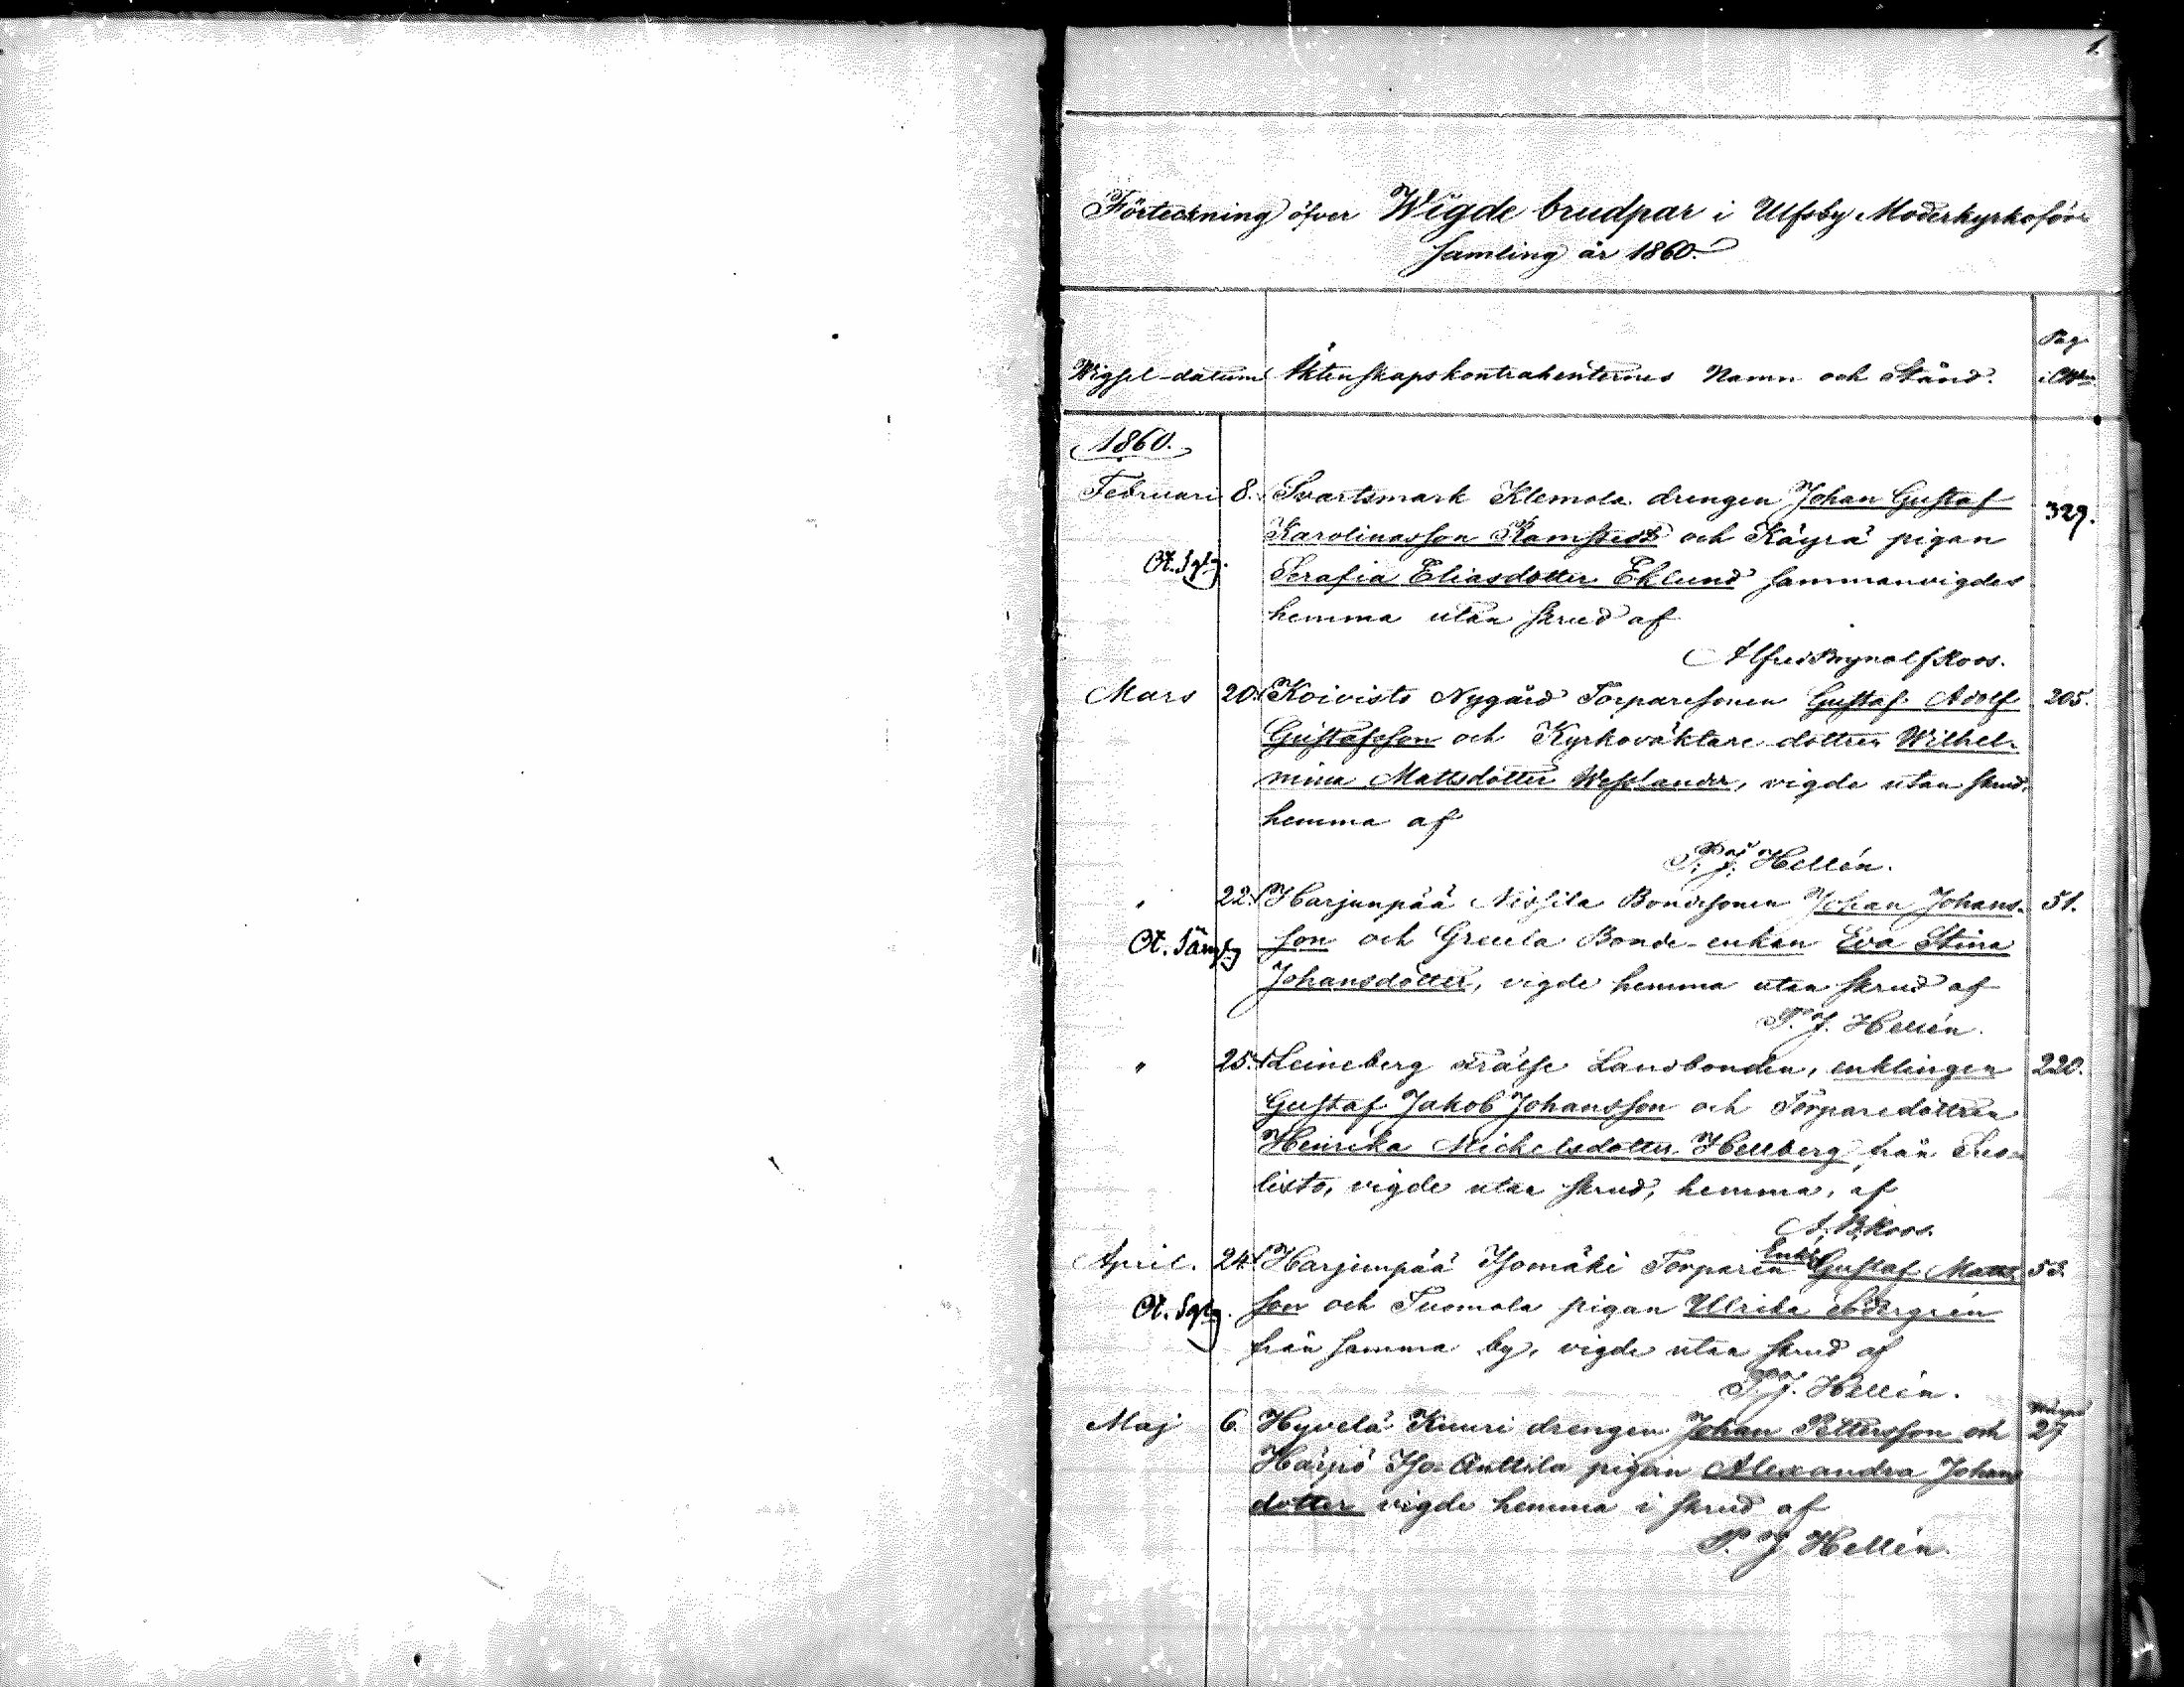 1.
Förteckning öfver Wigde brudpar i Ulfsby Moderkyrkoför-
samling år 1860.
Pag.
Wigsel-datum Äktenskapskontrahenternes Namn och Stånd. i
1860.
Februari 8. Svartsmark Klemola drengen Johan Gustaf 329.
Karolinasson Ramstedt och Käyrä pigan
Serafia Eliasdotter Eklund sammanvigdes
hemma utan skrud af
Alfred Brynolf Roos.
Mars 20. Koivisto Nygård Torparesonen Gustaf Adolf 205.
Gustafsson och Kyrkoväktare dottren Wilhel-
mina Mattsdotter Weslander, vigde utan skrud,
hemma af
P. J. Hellén.
" 22. Harjunpää Nissila Bondesonen Johan Johans- 51.
son och Greula Bonde-enkan Eva Stina
Johansdotter, vigde hemma utan skrud af
P. J. Hellén.
" 25. Leineberg Frälse Landbonden, enklingen 220.
Gustaf Jakob Johansson och Torparedottren
Henrika Michelsdotter Hellberg från
vigde utan skrud, hemma, af
A. B. Roos.
April. 24. Harjunpää Isomäki Torparen Enkl. Gustaf Matts- 53.
son och Tuomola pigan Ulrika Södergrén
från samma by, vigde utan skrud af
P. J. Hellén.
Maj 6. Hyvelä Kuuri drengen Johan Pettersson och 27
Härpö Iso-Anttila pigan Alexandra Johans
dotter vigde hemma i skrud af
P. J. Hellén.